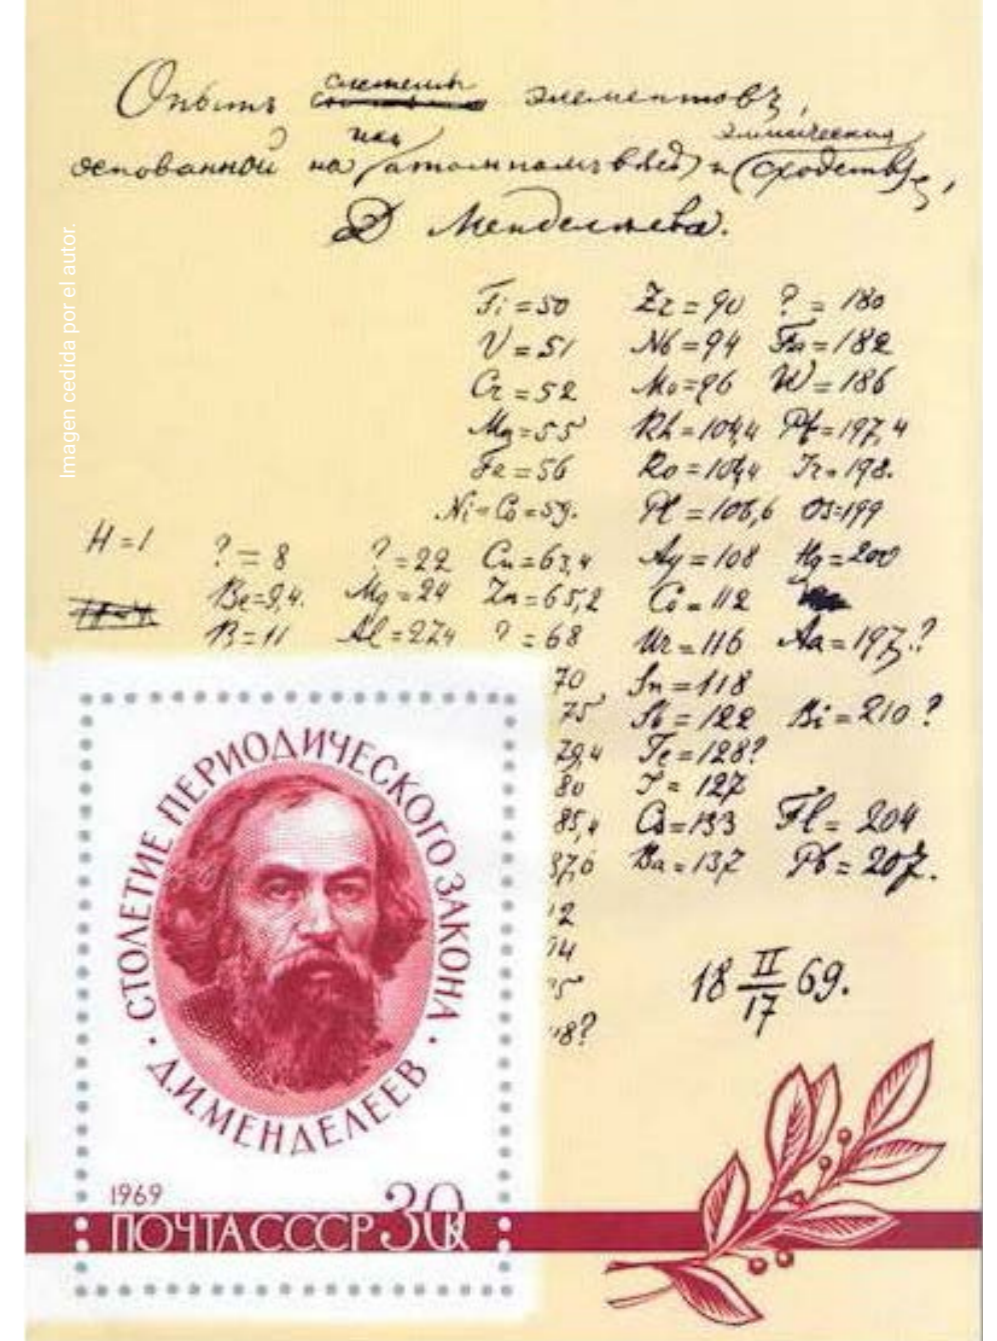 Опытъ системы элементовъ,
основанной на ихъ атомномъ вѣсѣ и химическомъ сходствѣ,
Д Менделѣева.
Imagen cedida por el autor.
Ti = 50 Zr = 90 ? = 180
V = 51 Nb = 94 Ta = 182
Cr = 52 Mo = 96 W = 186
Mn = 55 Rh = 104,4 Pt = 197,4
Fe = 56 Ro = 104,4 Ir = 198.
Ni = Co = 59. Pl = 106,6 Os = 199
H = 1 ? = 8 ? = 22 Cu = 63,4 Ag = 108 Hg = 200
Be = 9,4. Mg = 24 Zn = 65,2 Cd = 112
B = 11 Al = 27,4 ? = 68 Ur = 116 Au = 197?
70 Sn = 118
75 Sb = 122 Bi = 210?
79,4 Te = 128?
80 I = 127
85,4 Cs = 133 Tl = 204
87,6 Ba = 137 Pb = 207.
92
94
95
118?
18 II/17 69.
СТОЛЕТИЕ ПЕРИОДИЧЕСКОГО ЗАКОНА
· Д.И.МЕНДЕЛЕЕВ ·
1969
ПОЧТА СССР 30к